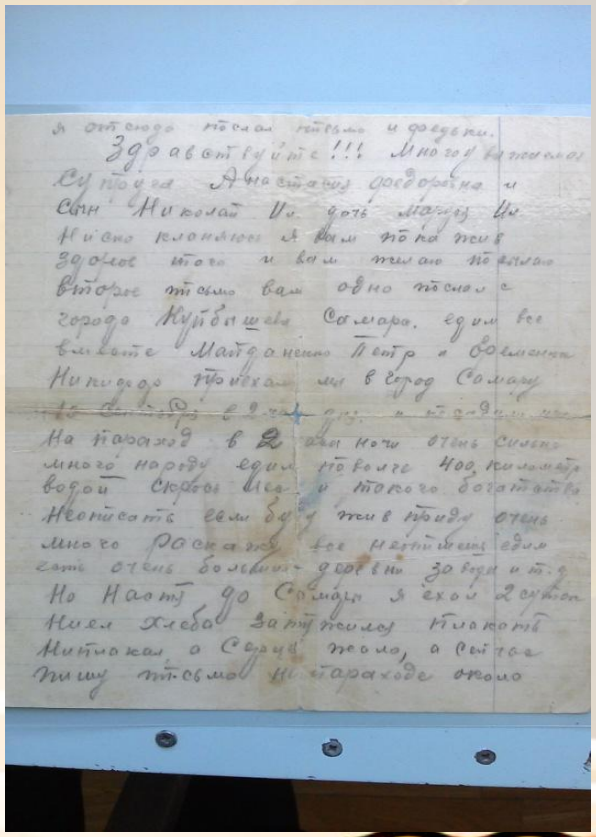 я отсюда послал письмо и федьки.
Здравствуйте!!! Многоуважемая
супруга Анастасия федоровна и
сын Николай Ил дочь Маруся Ил
Ниско кланяюсь я вам пока жив
здоров того и вам желаю посылаю
второе письмо вам одно послал с
города Куйбышева Самара. едим все
вместе Майданенко Петр и Временко
Никифор приехал мы в город Самару
в 2 часа дня и
На параход в 2 часа ночи очень сильно
много народу едим поволге 400 километр
водой скрозь леса и такого богатства
Неописать если буду жив приду очень
много Роскажу все неопишешь едим
есть очень большие деревни заводы и т.д
Но Наоты до Самары я ехал 2 суток
Ниел хлеба затужился плакать
Ниплакал а Серце жало, а сейчас
пишу письмо на параходе около